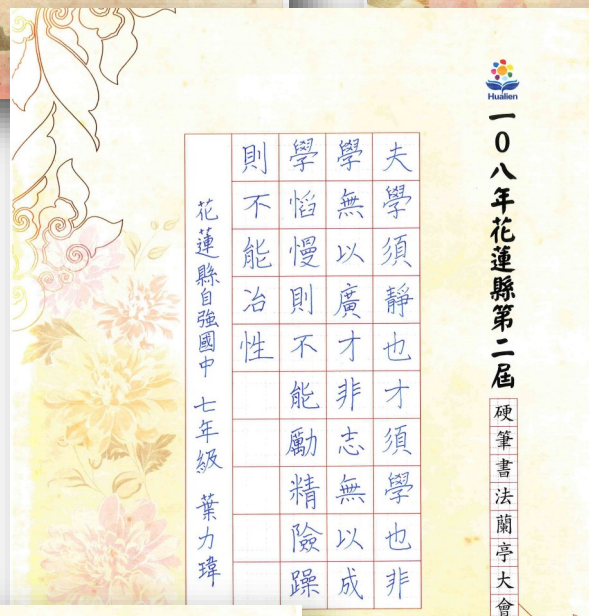 Hualien
一0八年花蓮縣第二屆
硬筆書法蘭亭大會
夫學須靜也才須學也非
學無以廣才非志無以成
學慆慢則不能勵精險躁
則不能冶性
花蓮縣自強國中 七年級 葉力瑋